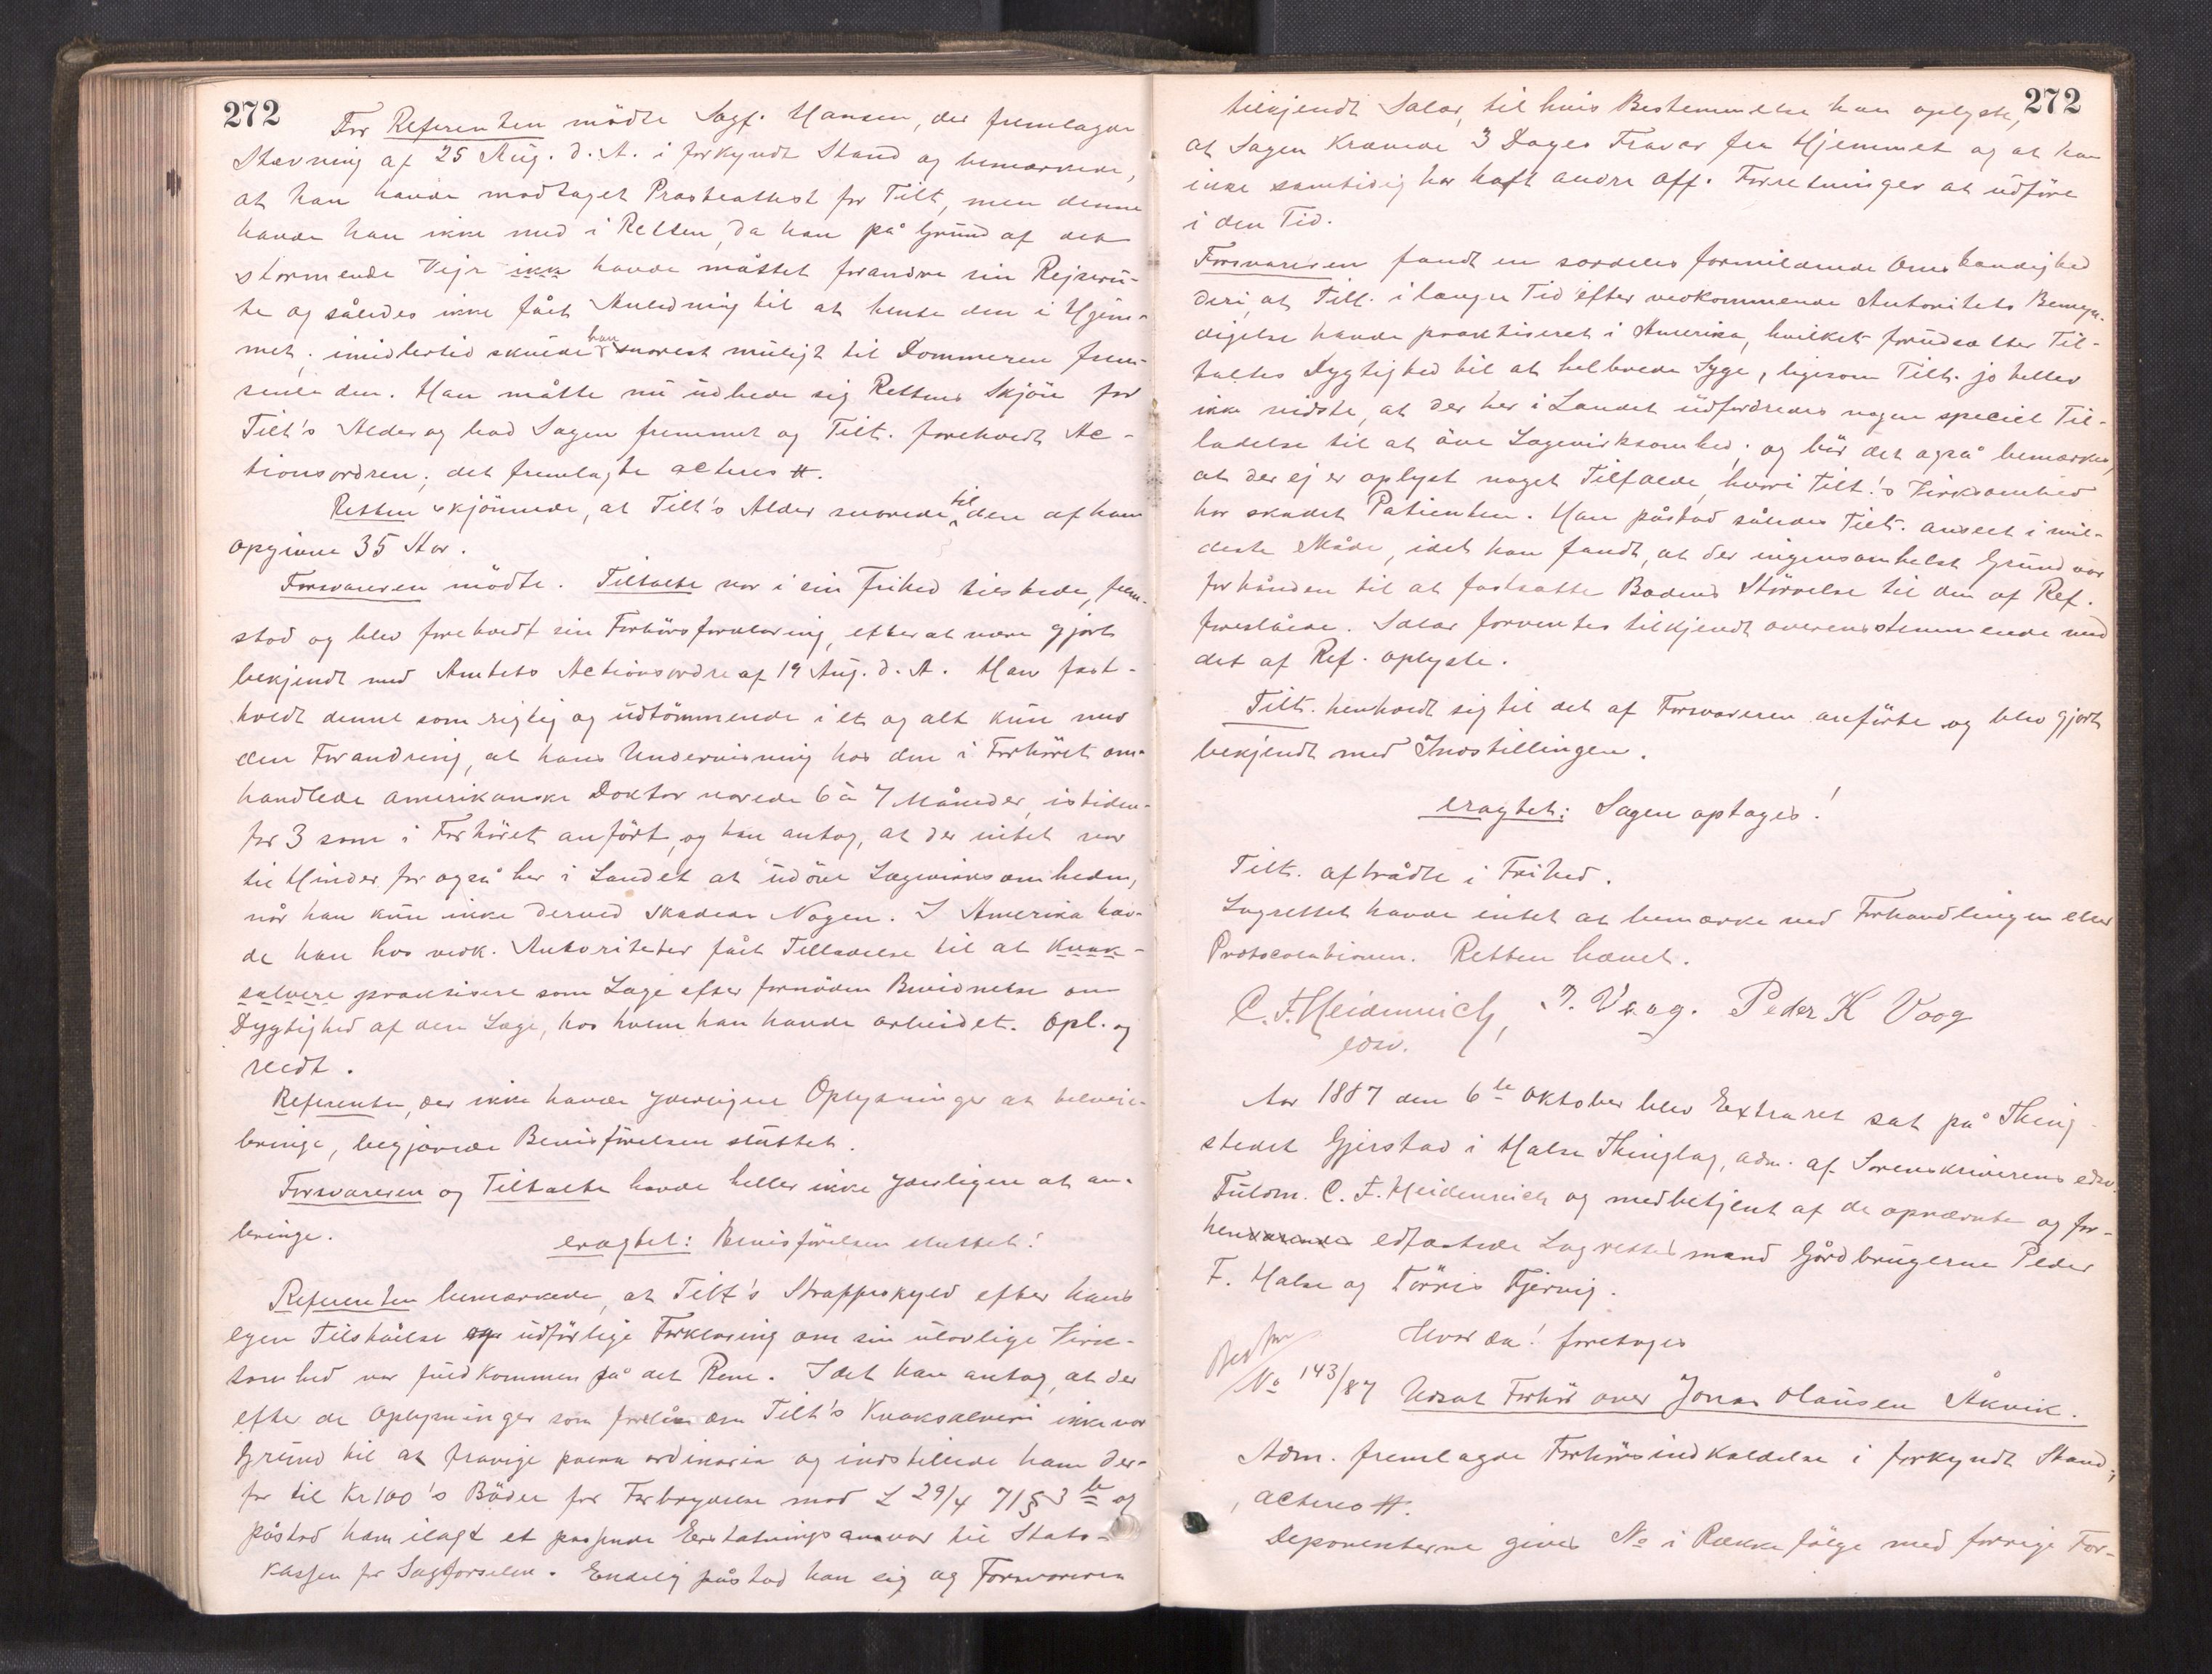 272
For Referenten mödte Sagf. Hansen, der fremlagde
Stævning af 25 Aug. d. A. i forkyndt Stand og bemærkede,
at han havde modtaget Præsteattest for Tilt, men denne
havde han ikke med i Retten, da han på Grund af det
stormende Vejr ikke havde måttet forandre sin Rejseru-
te og således ikke fået Anledning til at hente den i Hjem-
met; imidlertid skulde han snarest muligt til Dommeren frem-
sende den. Han måtte nu udbede sig Rettens Skjön for
Tilt's Alder og bad Sagen fremmet og Tilt. foreholdt Ac-
tionsordren; det fremlagte acteres #.
Retten skjönnede, at Tilt's Alder svarede til den af ham
opgivne 35 Aar.
Forsvareren mödte. Tiltalte var i sin Frihed tilstede, frem-
stod og blev foreholdt sin Forhörsforklaring, efter at være gjort
bekjendt med Amtets Actionsordre af 19 Aug. d. A. Han fast-
holdt denne som rigtig og udtömmende i et og alt kun med
den Forandring, at hans Undervisning hos den i Forhöret om-
handlede amerikanske Doktor varede 6 à 7 Måneder, isteden-
for 3 som i Forhöret anfört, og han antog, at der intet var
til Hinder for også her i Landet at udöve Lægevirksomheden,
når han kun ikke derved skadede Nogen. I Amerika hav-
de han hos vedk. Autoriteter fået Tilladelse til at kvak-
salvere praktisere som Læge efter fornöden Bevidnelse om
Dygtighed af den Læge, hos hvem han havde arbeidet. Opl. og
vedt.
Referenten, der ikke havde yderligere Oplysninger at tilveie-
bringe, begjærede Bevisförelsen sluttet.
Forsvareren og Tiltalte havde heller ikke yderligere at an-
bringe.
eragtet: Bevisförelsen sluttet!
Referenten bemærkede, at Tilt's Straffeskyld efter hans
egen Tilståelse og udförlige Forklaring om sin ulovlige Virk-
somhed var fuldkommen på det Rene. Idet han antog, at der
efter de Oplysninger som forelå om Tilt's Kvaksalveri ikke var
Grund til at fravige poena ordinaria og indstillede ham der-
for til Kr 100's Böder for Forbrydelse mod L 29/4 71 § 3 og
påstod ham ilagt et passende Erstatningsansvar til Stats-
kassen for Sagförselen. Endelig påstod han sig og Forsvareren
272
tilkjendt Salær, til hvis Bestemmelse han oplyste,
at Sagen krævede 3 Dages Fravær fra Hjemmet og at han
ikke samtidig har haft andre off. Forretninger at udföre
i den Tid.
Forsvareren fandt en særdeles formildende Omstændighed
deri, at Tilt. i længere Tid efter vedkommende Autoritets Bemyn-
digelse havde praktiseret i Amerika, hvilket forudsætter Til-
taltes Dygtighed til at helbrede Syge, ligesom Tilt. jo heller
ikke vidste, at der her i Landet udfordredes nogen speciel Til-
ladelse til at öve Lægevirksomhed; og bör det også bemærkes,
at der ej er oplyst noget Tilfælde, hvori Tilt.'s Virksomhed
har skadet Patienten. Han påstod således Tilt. anseet i mil-
deste Måde, idet han fandt, at der ingensomhelst Grund var
forhånden til at fastsætte Bödens Störrelse til den af Ref.
foreslåede. Salær forventes tilkjendt overensstemmende med
det af Ref. oplyste.
Tilt. henholdt sig til det af Forsvareren anförte og blev gjort
bekjendt med Indstillingen.
eragtet: Sagen optages!
Tilt. aftrådte i Frihed.
Lagrettet havde intet at bemærke ved Forhandlingen eller
Protocolationen. Retten hævet.
C. F. Heidenreich, J. Vaag. Peder K Vaag
edsv.
Aar 1887 den 6te Oktober blev Extraret sat på Thing-
stedet Gjerstad i Halse Thinglag, adm. af Sorenskriverens edsv.
Fuldm. C. F. Heidenreich og medbetjent af de opnævnte og for-
henværende edfæstede Lagrettesmænd Gårdbrugerne Peder
F. Halse og Törris Fjervig.
Hvor da! foretoges
No 143/87 Udsat Forhör over Jonas Olausen Åkvik.
Adm. fremlagde Forhörsindkaldelse i forkyndt Stand;
acteres #.
Deponenterne gives No i Rækkefölge med forrige For-